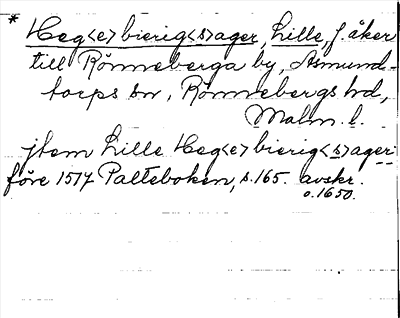 * Heg<e>bierig<s>ager, Lille, f. åker
till Rönneberga by, Asmund-
torps sn, Rönnebergs hd,
Malm. l.
jtem Lille Heg<e>bierig<s>ager
före 1517 Palteboken, s. 165. avskr.
o. 1650.